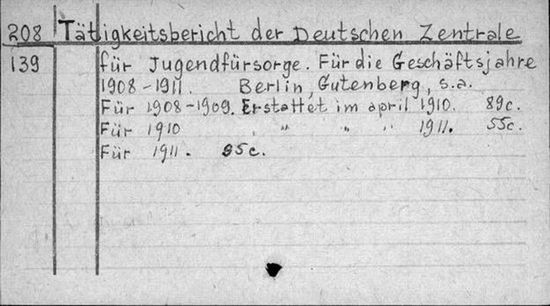 208 Tätigkeitsbericht der Deutschen Zentrale
139 für Jugendfürsorge. Für die Geschäftsjahre
1908-1911. Berlin, Gutenberg, s.a.
Für 1908-1909. Erstattet im april 1910. 89c.
Für 1910 " " " 1911. 55c.
Für 1911. 85c.